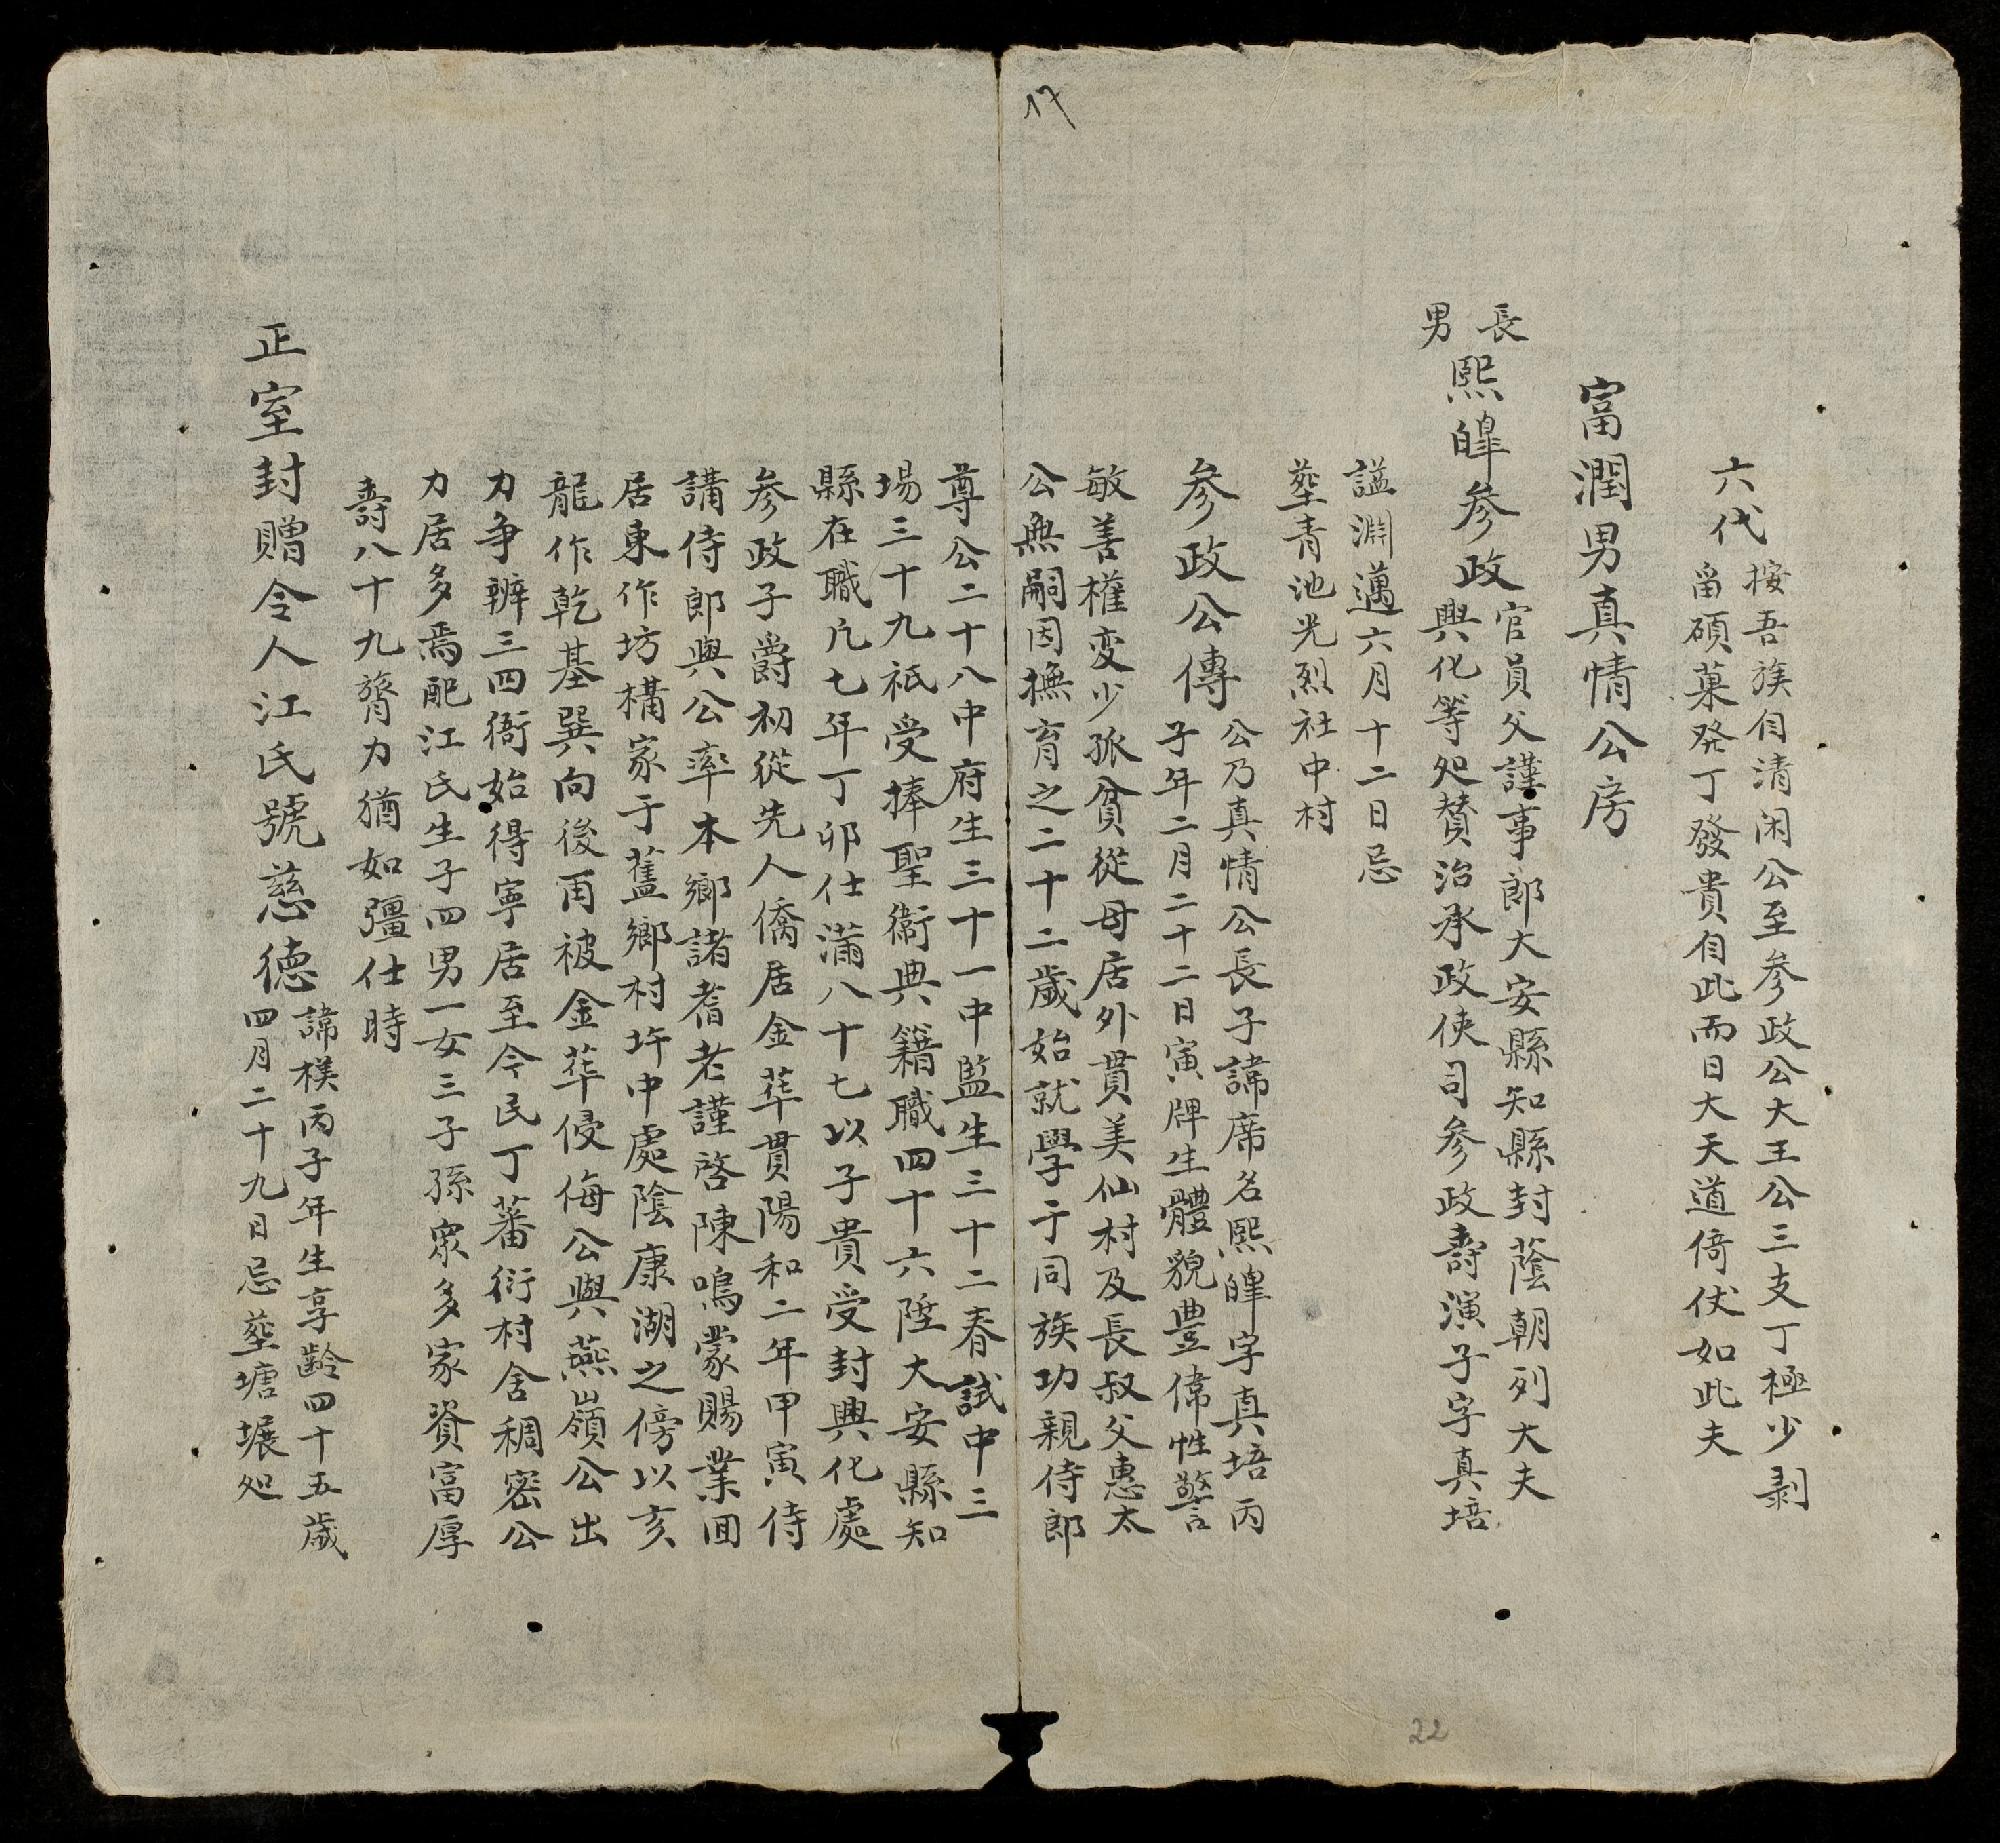 17
六代
按吾族自清闲公至参政公大王公三支丁極少剥
畱碩菓発丁發貴自此而日大天道倚伏如此夫
富潤男真情公房
長男
熙皡参政
官員父謹事郎大安縣知縣封蔭朝列大夫
興化等処賛治承政使司参政壽演子字真培
謚淵邁六月十二日忌
塟青池光烈社中村
参政公傳
公乃真情公長子諱席名熙皡字真培丙
子年二月二十二日寅牌生體貌豊偉性警
敏善權变少孤貧從母居外貫美仙村及長叔父惠太
公無嗣因撫育之二十二歲始就學于同族功親侍郎
尊公二十八中府生三十一中監生三十二春試中三
場三十九祇受捧聖衞典籍職四十六陞大安縣知
縣在職凢七年丁卯仕滿八十七以子貴受封興化處
参政子爵初從先人僑居金葑貫陽和二年甲寅侍
講侍郎與公率本鄉諸耆老謹啓陳鳴蒙賜業囬
居東作坊構家于舊鄉村圷中處陰康湖之傍以亥
龍作乾基巽向後再被金葑侵侮公與燕嶺公出
力争辨三四衙始得寧居至今民丁蕃衍村舍稠密公
力居多焉配江氏生子四男一女三子孫衆多家資富厚
壽八十九膂力猶如彊仕時
正室封贈令人江氏號慈德
諱樸丙子年生享齡四十五歲
四月二十九日忌塟塘𡑱処
22